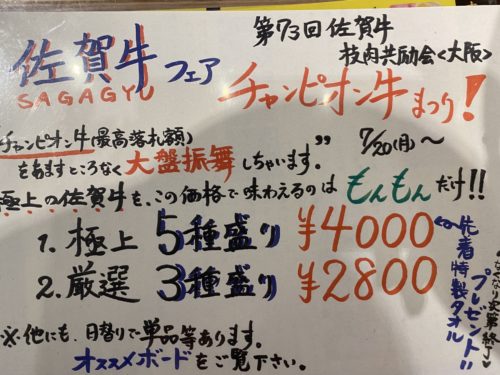 佐賀牛フェア
SAGAGYU
第73回佐賀牛
枝肉共励会<大阪>
チャンピオン牛まつり!
チャンピオン牛(最高落札額)
をあますところなく大盤振舞しちゃいます。”
7/20(月)〜
極上の佐賀牛を、この価格で味わえるのはもんもんだけ!!
1. 極上 5種盛り ¥4000
2. 厳選 3種盛り ¥2800
先着特製タオル
プレゼント!!
なくなり次第終了
※他にも、日替りで単品等あります。
オススメボードをご覧下さい。